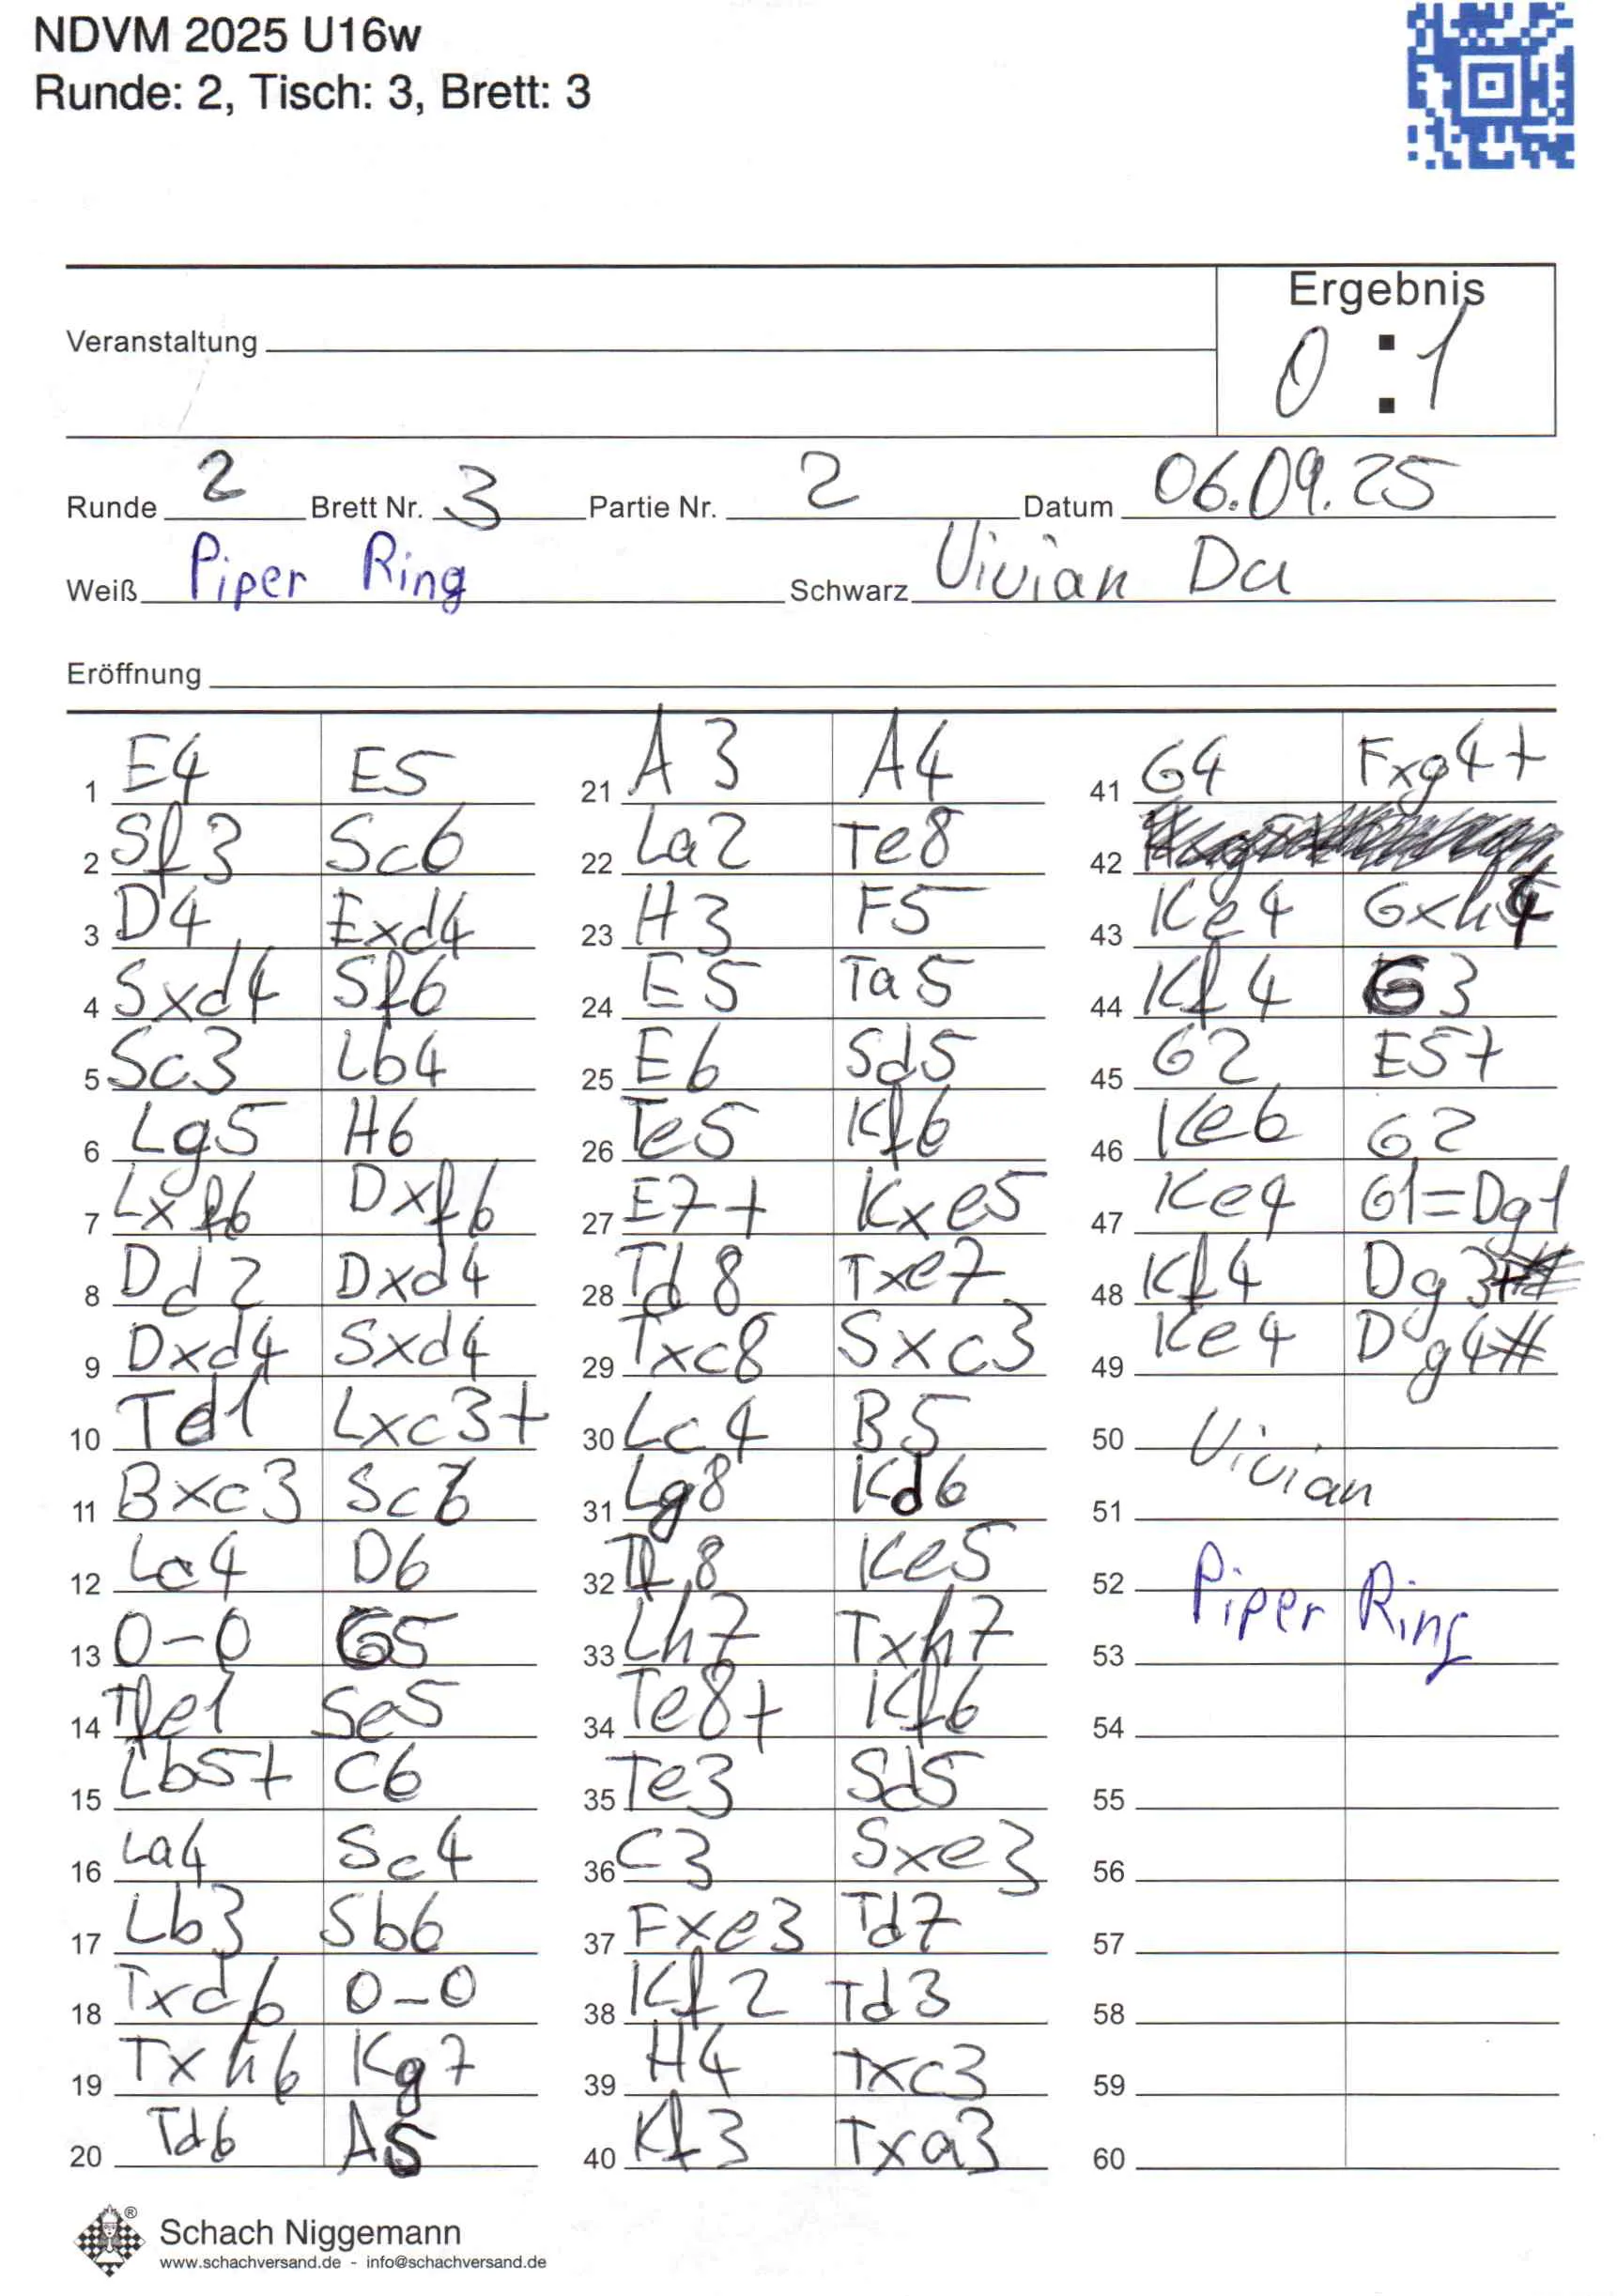 NDVM 2025 U16w
Runde: 2, Tisch: 3, Brett: 3
Ergebnis
Veranstaltung
0 : 1
Runde 2 Brett Nr. 3 Partie Nr. 2 Datum 06.09.25
Weiß Piper Ring Schwarz Vivian Da
Eröffnung
1 E4 E5
2 Sf3 Sc6
3 D4 Exd4
4 Sxd4 Sf6
5 Sc3 Lb4
6 Lg5 H6
7 Lxf6 Dxf6
8 Dd2 Dxd4
9 Dxd4 Sxd4
10 Td1 Lxc3+
11 Bxc3 Sc6
12 Lc4 D6
13 0-0 G5
14 Tfe1 Se5
15 Lb5+ C6
16 La4 Sc4
17 Lb3 Sb6
18 Txd6 0-0
19 Txh6 Kg7
20 Td6 A5
21 A3 A4
22 La2 Te8
23 H3 F5
24 E5 Ta5
25 E6 Sd5
26 Te5 Kf6
27 E7+ Kxe5
28 Td8 Txe7
29 Txc8 Sxc3
30 Lc4 B5
31 Lg8 Kd6
32 Tf8 Ke5
33 Lh7 Txh7
34 Te8+ Kf6
35 Te3 Sd5
36 C3 Sxe3
37 Fxe3 Td7
38 Kf2 Td3
39 H4 Txc3
40 Kf3 Txa3
41 G4 Fxg4+
42
43 Ke4 Gxh4
44 Kf4 G3
45 G2 E5+
46 Ke6 G2
47 Ke4 G1=Dg1
48 Kf4 Dg3+
49 Ke4 Dg4#
50 Vivian
51
52 Piper Ring
53
54
55
56
57
58
59
60
Schach Niggemann
www.schachversand.de - info@schachversand.de